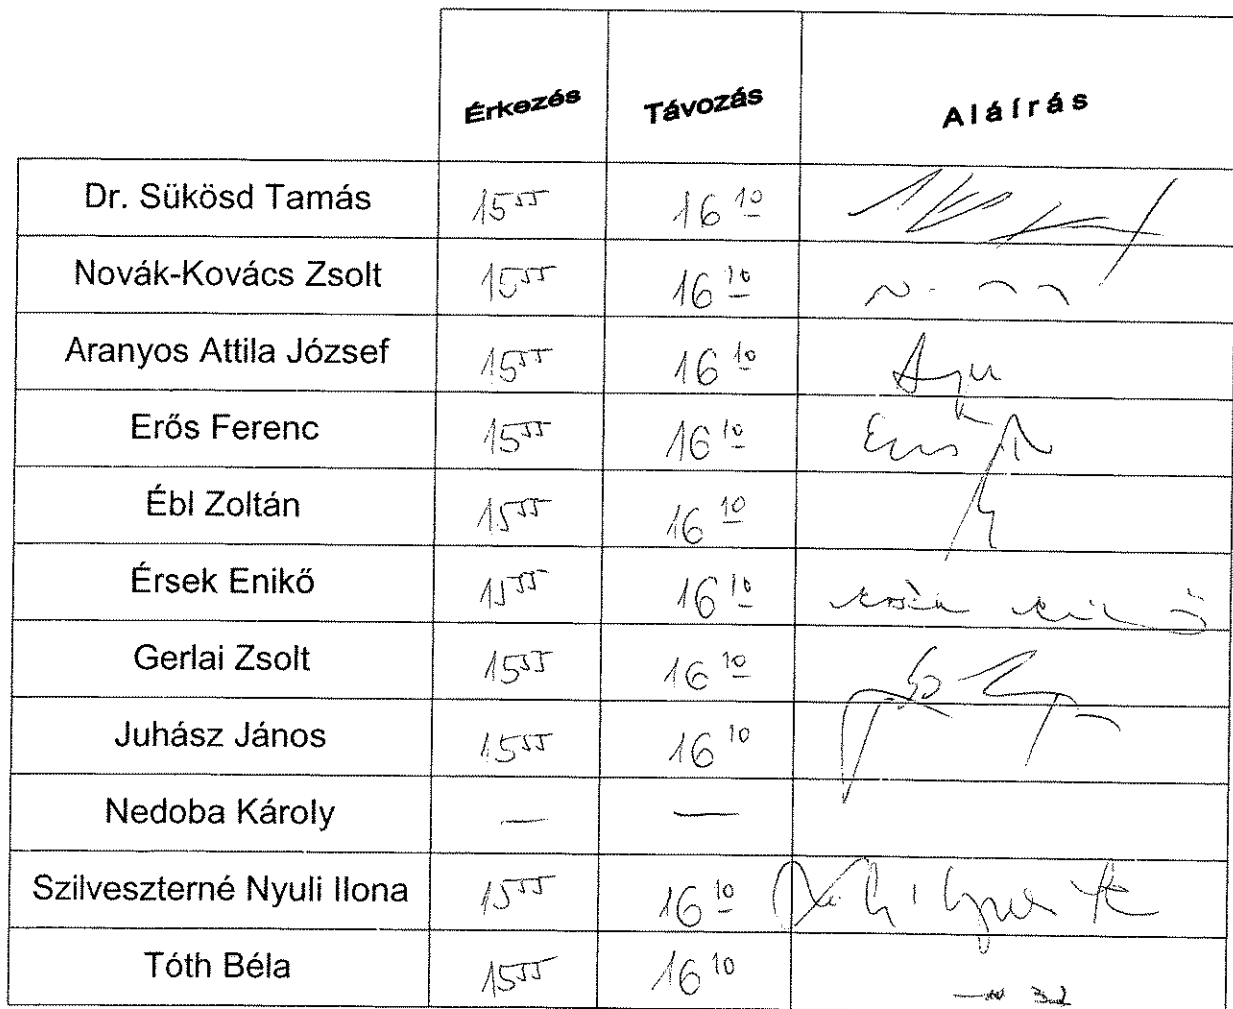 Érkezés Távozás Aláírás
Dr. Sükösd Tamás 15⁵⁵ 16¹⁰
Novák-Kovács Zsolt 15⁵⁵ 16¹⁰
Aranyos Attila József 15⁵⁵ 16¹⁰
Erős Ferenc 15⁵⁵ 16¹⁰
Ébl Zoltán 15⁵⁵ 16¹⁰
Érsek Enikő 15⁵⁵ 16¹⁰
Gerlai Zsolt 15⁵⁵ 16¹⁰
Juhász János 15⁵⁵ 16¹⁰
Nedoba Károly — —
Szilveszterné Nyuli Ilona 15⁵⁵ 16¹⁰
Tóth Béla 15⁵⁵ 16¹⁰